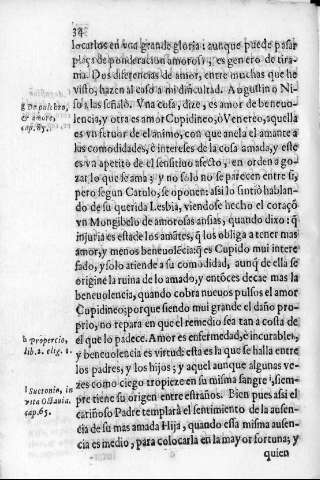 34
locarlos en vna grande gloria: aunque puede passar
plaça de ponderacion amorosa, es genero de tira-
nia. Dos diferencias de amor, entre muchas que he
visto, hazen al caso a mi dificultad. Augustino Ni-
so a las señalò. Vna cosa, dize, es amor de beneuo-
lencia, y otra es amor Cupidineo, ò Venereo, aquella
es vn feruor de el animo, con que anela el amante a
las comodidades, è intereses de la cosa amada, y este
es vn apetito de el sensitiuo afecto, en orden a go-
zar lo que se ama; y no solo no se parecen entre si,
pero segun Catulo, se oponen: assi lo sintiò hablan-
do de su querida Lesbia, viendose hecho el coraçõ
vn Mongibelo de amorosas ansias, quando dixo: q̃
injuria es esta de los amãtes, q̃ los obliga a tener mas
amor, y menos beneuolécia: q̃ es Cupido mui intere
sado, y solo atiende a su comodidad, aunq̃ de ella se
origine la ruina de lo amado, y entõces decae mas la
beneuolencia, quando cobra nueuos pulsos el amor
Cupidineo; porque siendo mui grande el daño pro-
prio, no repara en que el remedio sea tan a costa de
el que lo padece. Amor es enfermedad, è incurable,
y beneuolencia es virtud: esta es la que se halla entre
los padres, y los hijos; y aquel aunque algunas ve-
zes como ciego tropieze en su misma sangre, siem-
pre tiene su origen entre estraños. Bien pues assi el
cariñoso Padre templarà el sentimiento de la ausen-
cia de su mas amada Hija, quando essa misma ausen-
cia es medio, para colocarla en la mayor fortuna; y
quien
g De pulchro,
& amore,
cap. 65.
h Propercio,
lib. 2. eleg. 1.
i Suetonio, in
vita Octauia.
cap. 65.